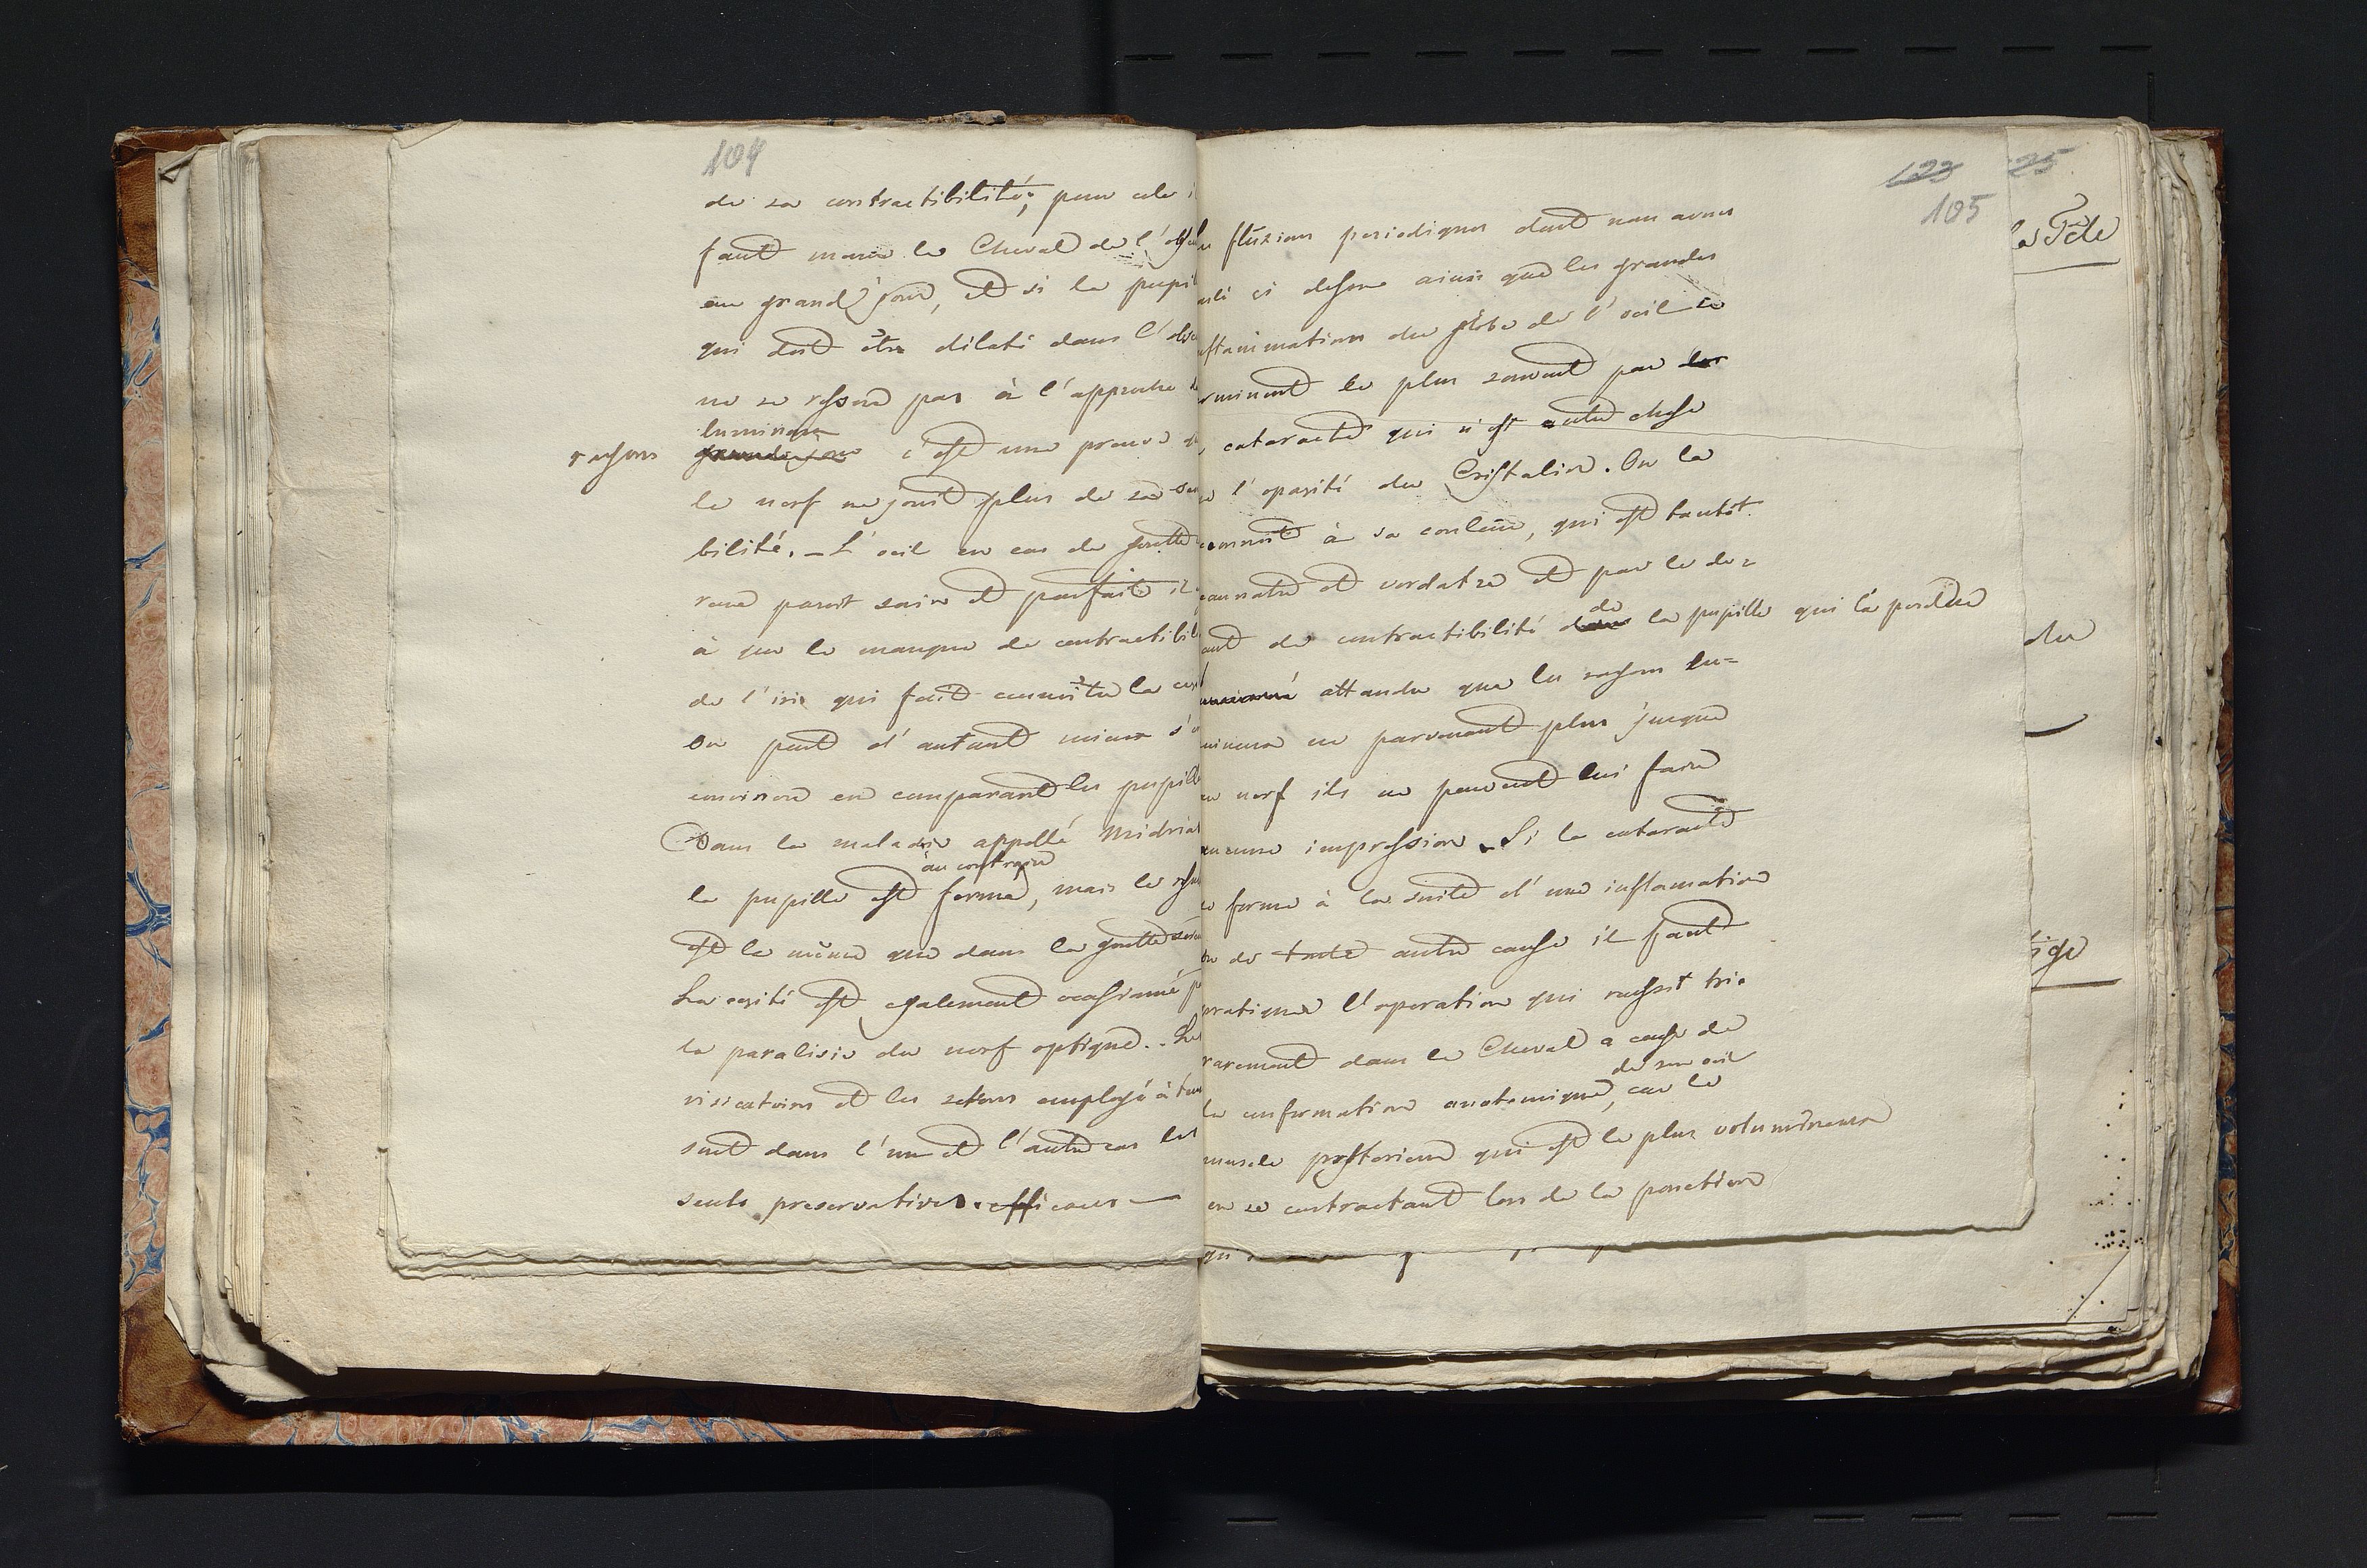 104
de sa contractibilité; pour cela i
faut mener le Cheval de l'obsc
au grand jour, et si la pupil
qui doit être dilaté dans l'obsc
ne se resserre pas à l'approche
lumineux
rayons c'est une preuve q
le nerf ne jouit plus de sa sen
bilité. – L'oeil en cas de goutte
reine paroit sain et parfait il
à que le manque de contractibil
de l'iris qui fait connoitre la
On peut d'autant mieux s'
convincre en comparant les pupille
Dans la maladie appellé Midria
au contraire
la pupille est fermé, mais le
est le même que dans la goutte serei
La cecité est egalement ocassionné p
la paralisie du nerf optique. – Les
visicatoires et les setons employé à
sont dans l'un et l'autre cas les
seuls preservatives efficaces —
123 25
105
la Tête
fluxions periodiques dont nous avons
ci dessus ainsi que les grandes
nflammations du globe de l'oeil se
rminent le plus souvent par la
cataracte qui n'est autre chose
l'opasité du Cristalin. On la
connoit à sa couleur, qui est tantôt
aunatre et verdatre et par le de=
de
aut de contractibilité la pupille qui l'a perdue
attendu que les rayons lu=
mineux ne parvenant plus jusque
au nerf ils ne peuvent lui faire
aucune impression. Si la cataracte
se forme à la suite d'une inflamation
ou de toute autre cause il faut
pratiquer l'operation qui reussit tri.
rarement dans le Cheval a cause de
de son oeil
la conformation anatomique, car le
muscle posterieur qui est le plus volumineux
en se contractant lors de la ponction
qu
du
ige